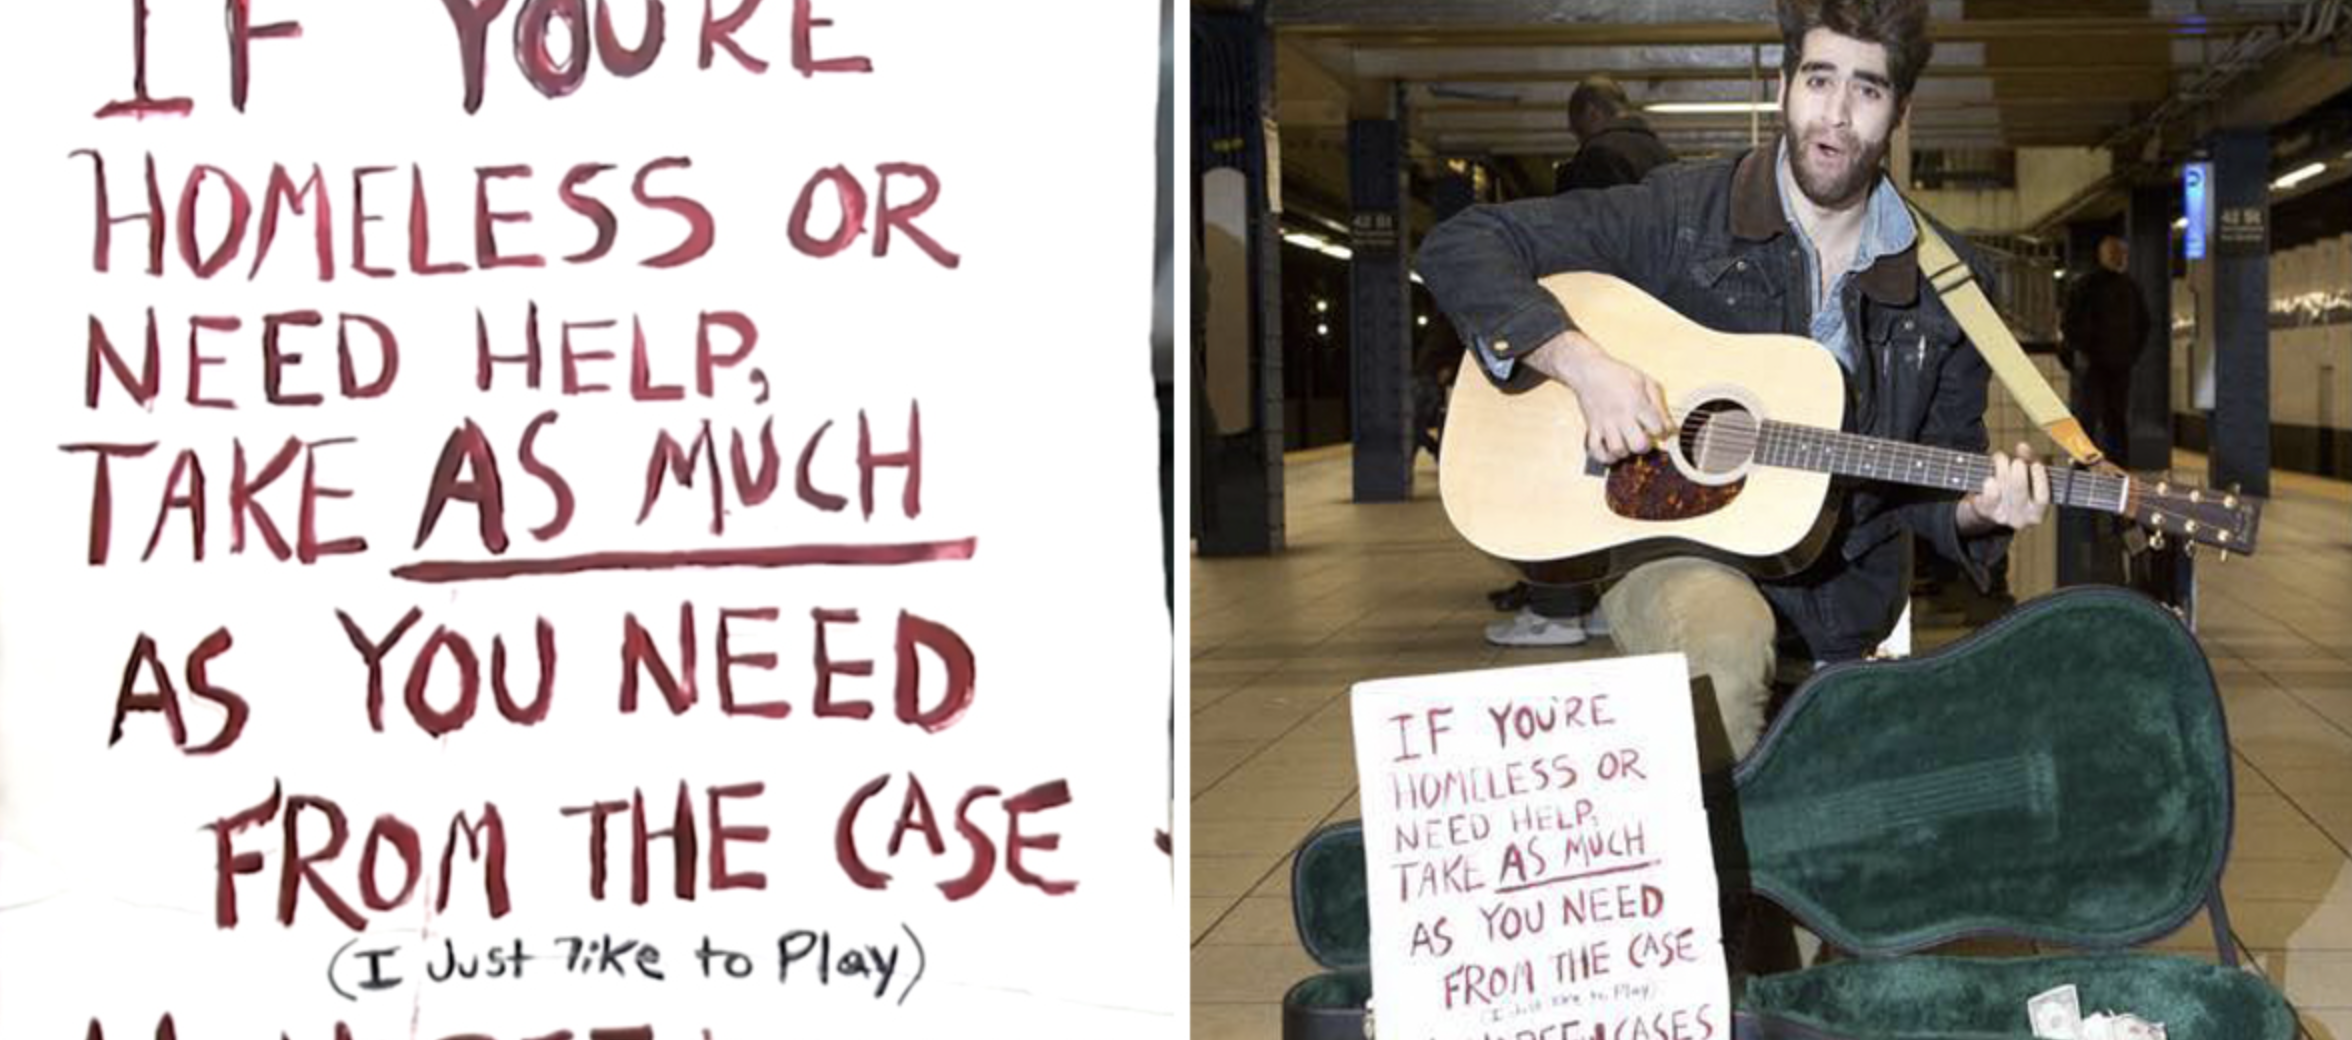 IF YOU'RE
HOMELESS OR
NEED HELP,
TAKE AS MUCH
AS YOU NEED
FROM THE CASE
(I Just like to Play)
42 St
42 St
IF YOU'RE
HOMELESS OR
NEED HELP,
TAKE AS MUCH
AS YOU NEED
FROM THE CASE
(I Just like to Play)
CASES